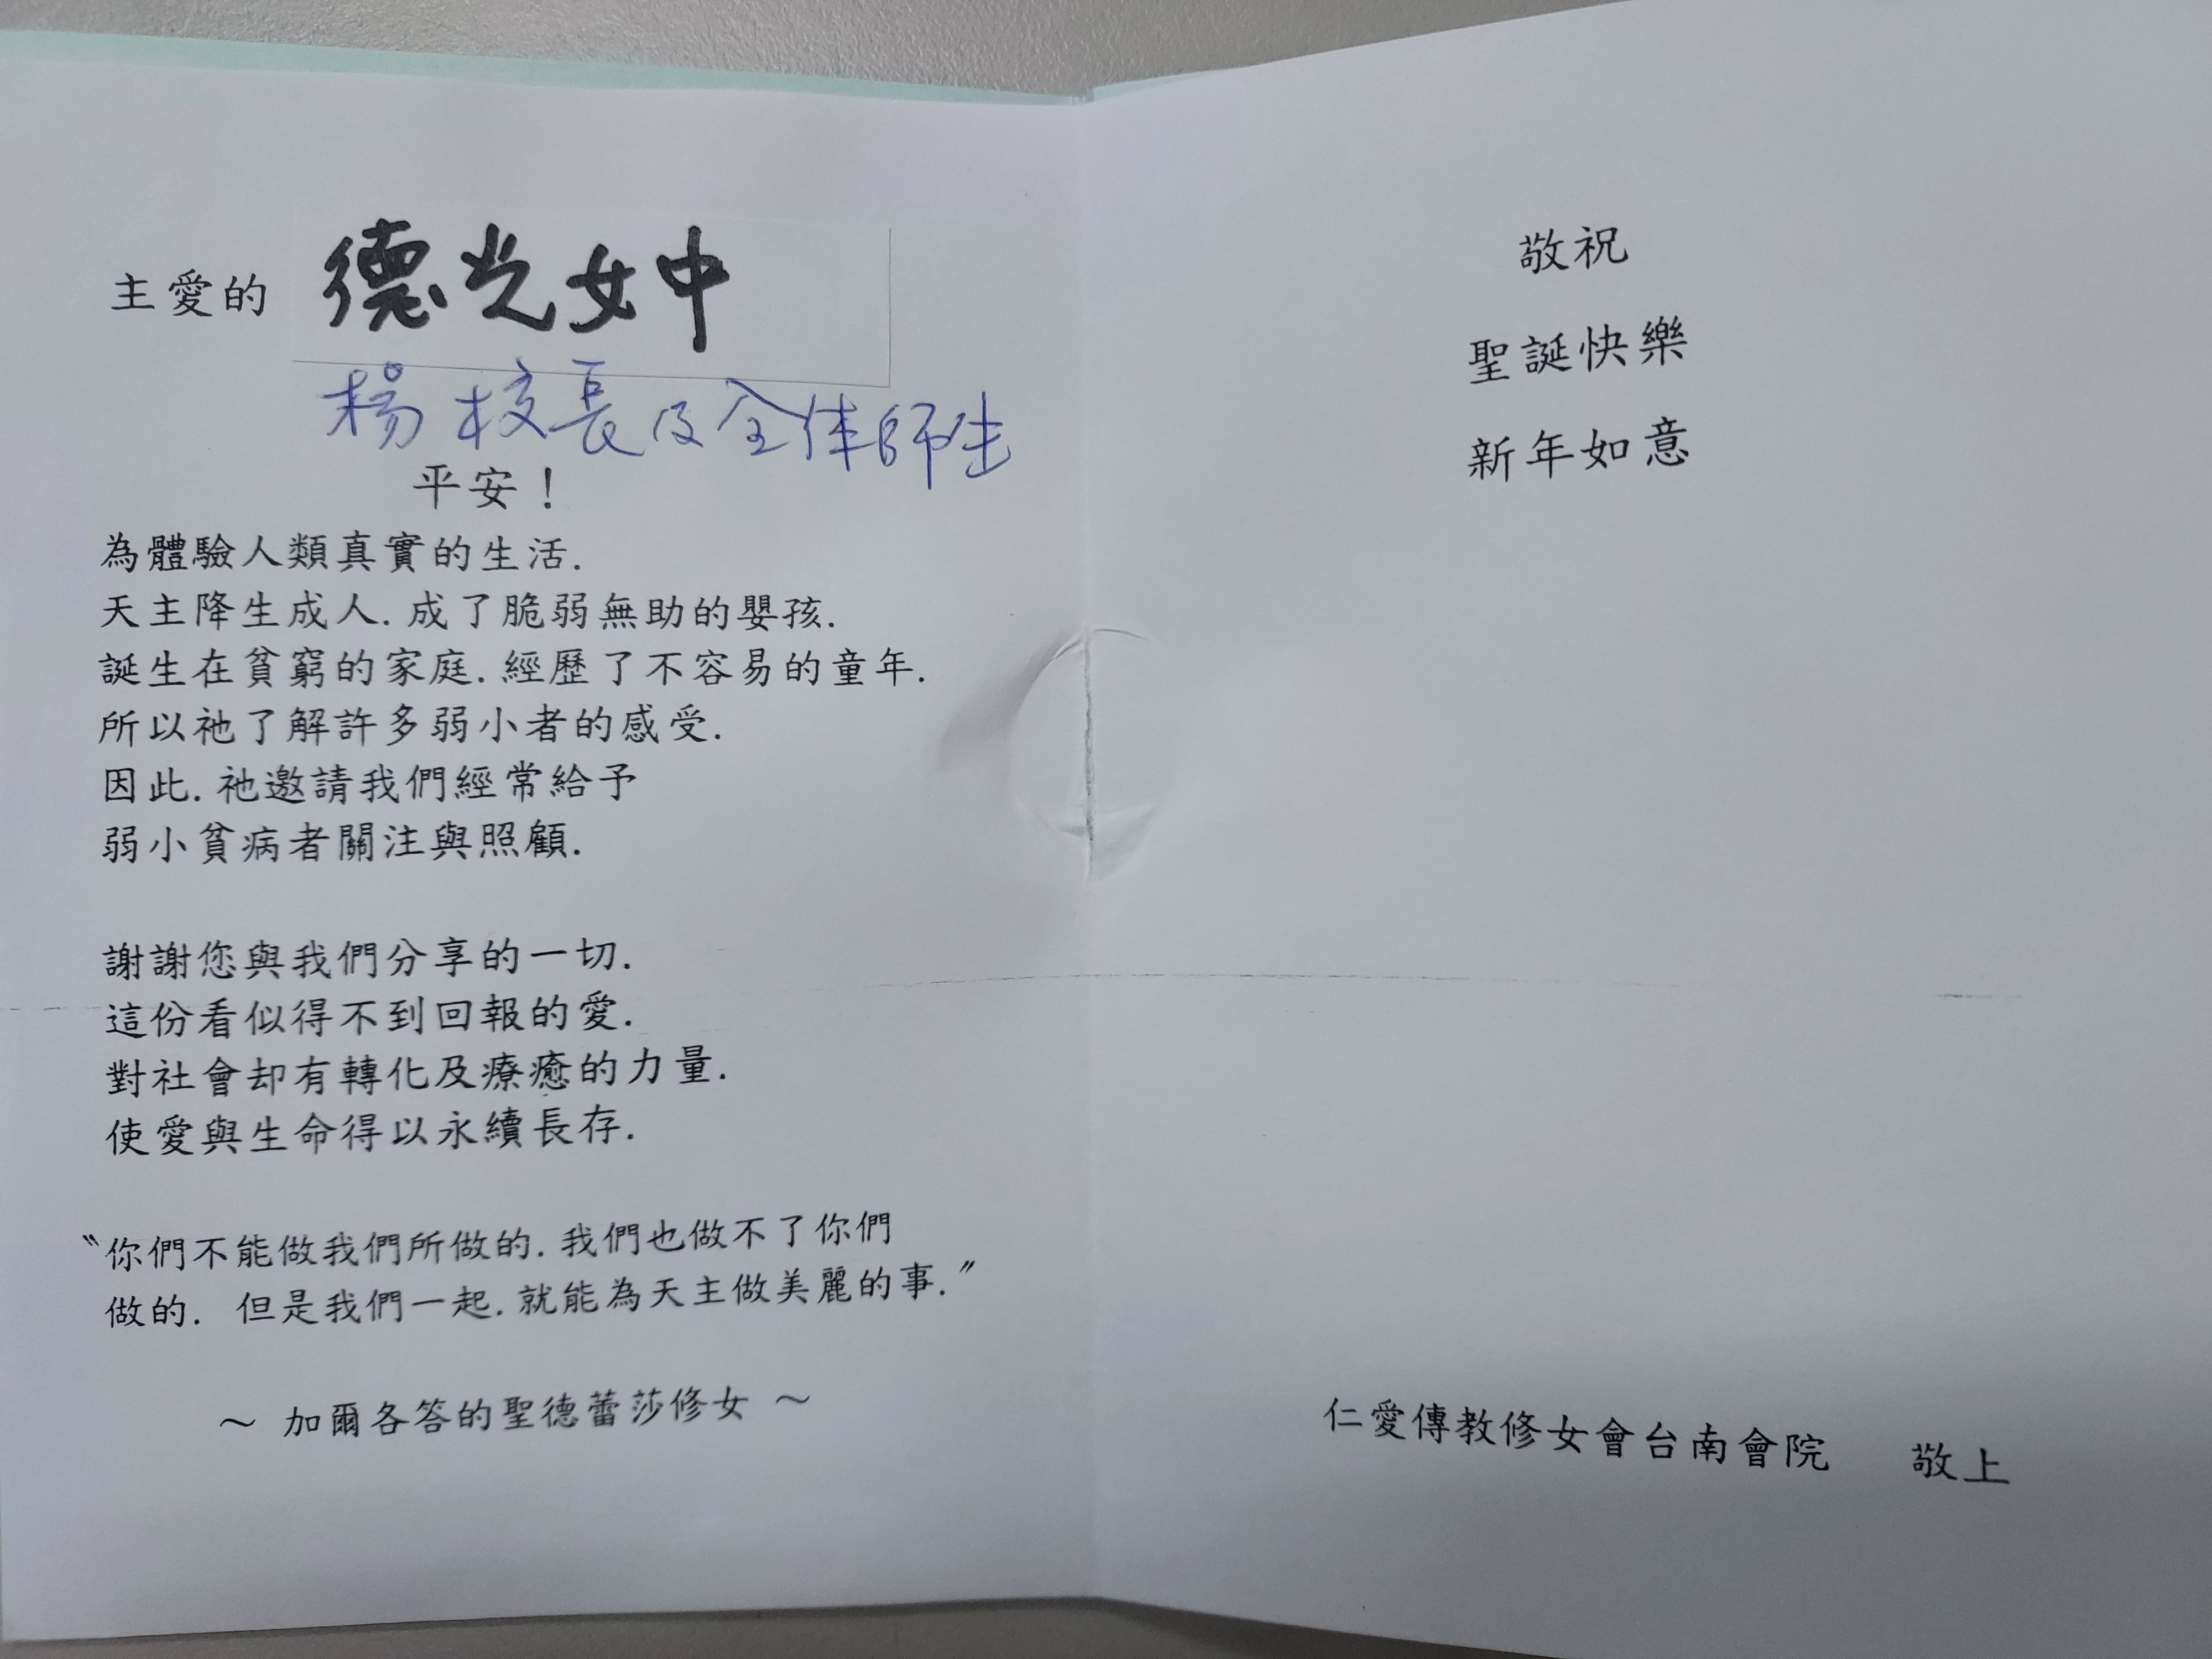 主愛的 德光女中
楊校長及全体師生
平安！
為體驗人類真實的生活.
天主降生成人.成了脆弱無助的嬰孩.
誕生在貧窮的家庭.經歷了不容易的童年.
所以祂了解許多弱小者的感受.
因此.祂邀請我們經常給予
弱小貧病者關注與照顧.
謝謝您與我們分享的一切.
這份看似得不到回報的愛.
對社會却有轉化及療癒的力量.
使愛與生命得以永續長存.
〝你們不能做我們所做的.我們也做不了你們
做的. 但是我們一起.就能為天主做美麗的事.〞
～ 加爾各答的聖德蕾莎修女 ～
敬祝
聖誕快樂
新年如意
仁愛傳教修女會台南會院 敬上